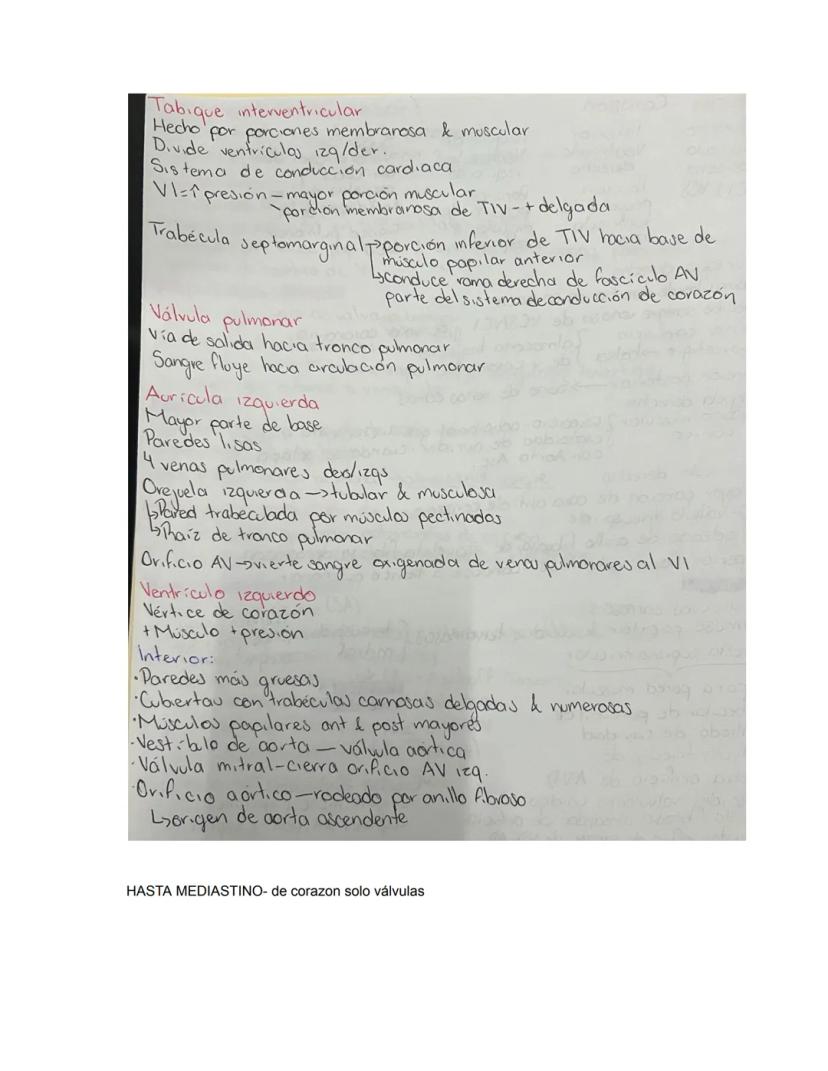 Tabique interventricular
Hecho por porciones membranosa & muscular
Divide ventrículos izq/der.
Sistema de conducción cardiaca
VI=↑presión – mayor porción muscular
porción membranosa de TIV - + delgada
Trabécula septomarginal→porción inferior de TIV hacia base de
músculo papilar anterior
↳conduce rama derecha de fascículo AV
parte del sistema de conducción de corazón
Válvula pulmonar
Vía de salida hacia tronco pulmonar
Sangre fluye hacia circulación pulmonar
Aurícula izquierda
Mayor parte de base
Paredes lisas
4 venas pulmonares der/izqs
Orejuela izquierda→tubular & musculosa
↳Pared trabeculada por músculos pectinados
↳Raíz de tronco pulmonar
Orificio AV→vierte sangre oxigenada de venas pulmonares al VI
Ventrículo izquierdo
Vértice de corazón
+ Músculo + presión
Interior:
·Paredes más gruesas
·Cubertas con trabéculas carnosas delgadas & numerosas
·Músculos papilares ant & post mayores
·Vestíbulo de aorta – válvula aórtica
·Válvula mitral-cierra orificio AV izq.
·Orificio aórtico – rodeado por anillo fibroso
↳origen de aorta ascendente
HASTA MEDIASTINO- de corazon solo válvulas